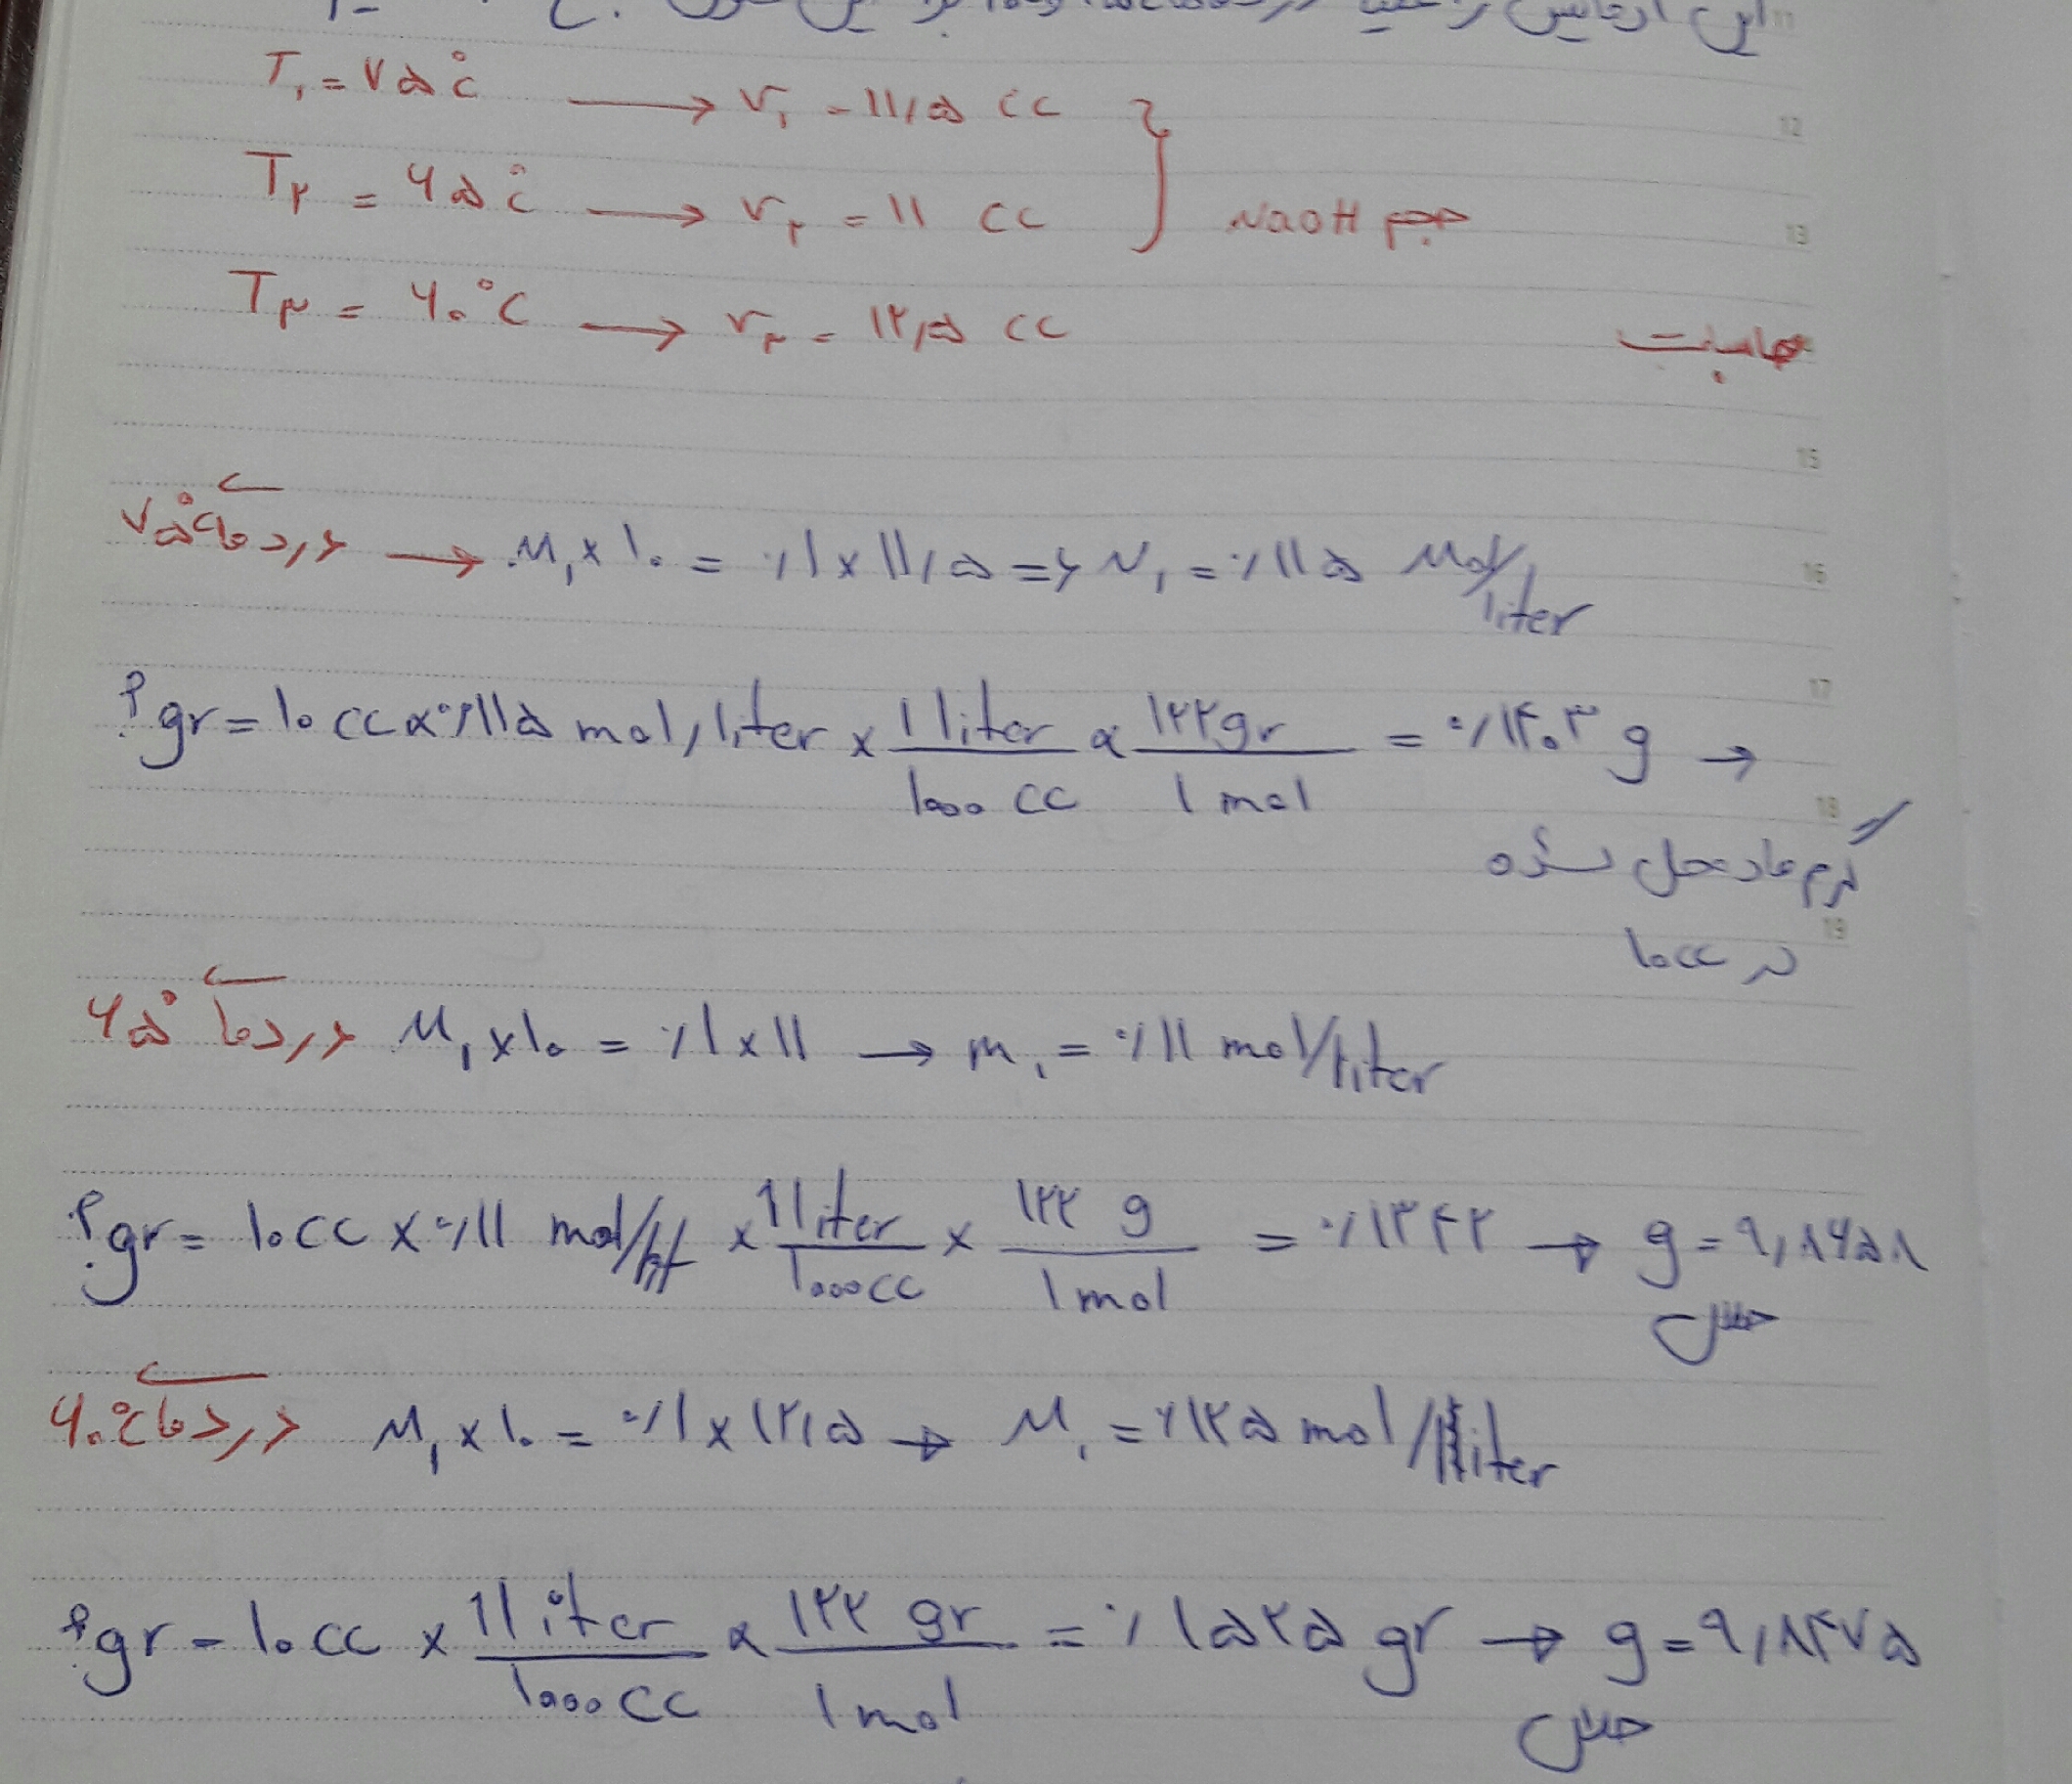 این آزمایش را
T₁ = ۷۵°C → V₁ = ۱۱٫۵ cc
T₂ = ۶۵°C → V₂ = ۱۱ cc
حجم NaOH
T₃ = ۶۰°C → V₃ = ۱۲٫۵ cc
محاسبات
در دمای ۷۵°C → M₁ × ۱۰ = ۰٫۱ × ۱۱٫۵ => N₁ = ۰٫۱۱۵ mol/liter
؟gr = ۱۰ cc × ۰٫۱۱۵ mol/liter × ۱ liter / ۱۰۰۰ cc × ۱۲۲ gr / ۱ mol = ۰٫۱۴۰۳ g →
گرم ماده حل شده
در ۱۰cc
در دمای ۶۵° M₁ × ۱۰ = ۰٫۱ × ۱۱ → m₁ = ۰٫۱۱ mol/liter
؟gr = ۱۰cc × ۰٫۱۱ mol/lit × ۱ liter / ۱۰۰۰cc × ۱۲۲ g / ۱ mol = ۰٫۱۳۴۲ → g = ۹٫۸۶۵۸
حلال
در دمای ۶۰°C M₁ × ۱۰ = ۰٫۱ × ۱۲٫۵ → M₁ = ۰٫۱۲۵ mol/liter
؟gr = ۱۰ cc × ۱ liter / ۱۰۰۰ cc × ۱۲۲ gr / ۱ mol = ۰٫۱۵۲۵ gr → g = ۹٫۸۴۷۵
حلال